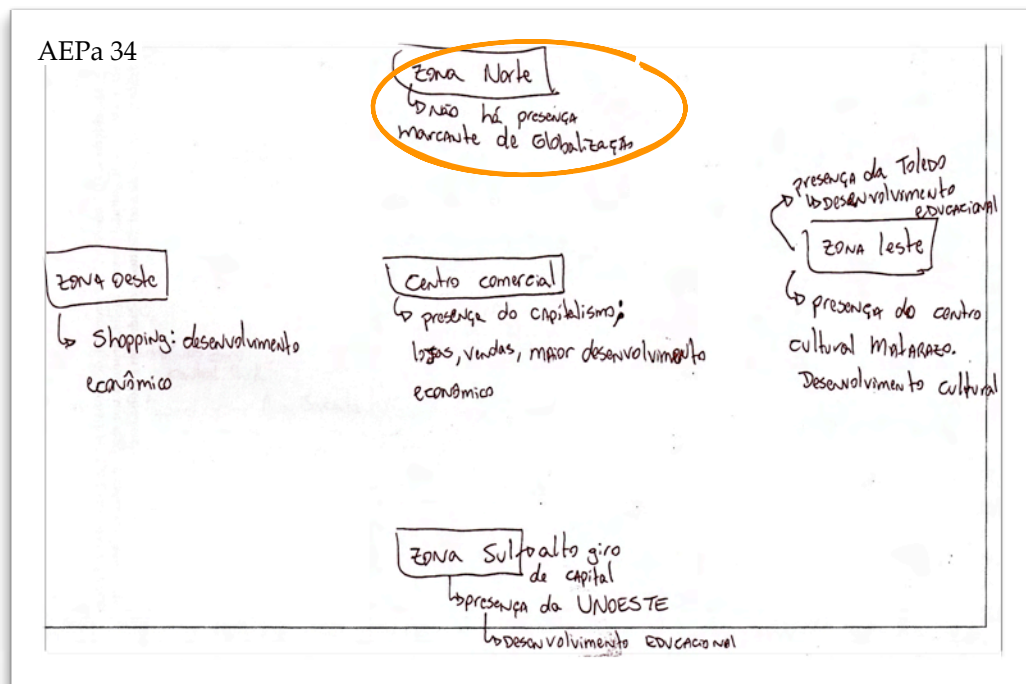 AEPa 34
Zona Norte
Não há presença
marcante de Globalização
presença da Toledo
Desenvolvimento
educacional
Zona leste
presença do centro
cultural Matarazo.
Desenvolvimento cultural
Zona Oeste
Shopping: desenvolvimento
econômico
Centro comercial
presença do capitalismo;
lojas, vendas, maior desenvolvimento
econômico
Zona Sul
alto giro
de capital
presença da UNOESTE
Desenvolvimento EDUCACIONAL